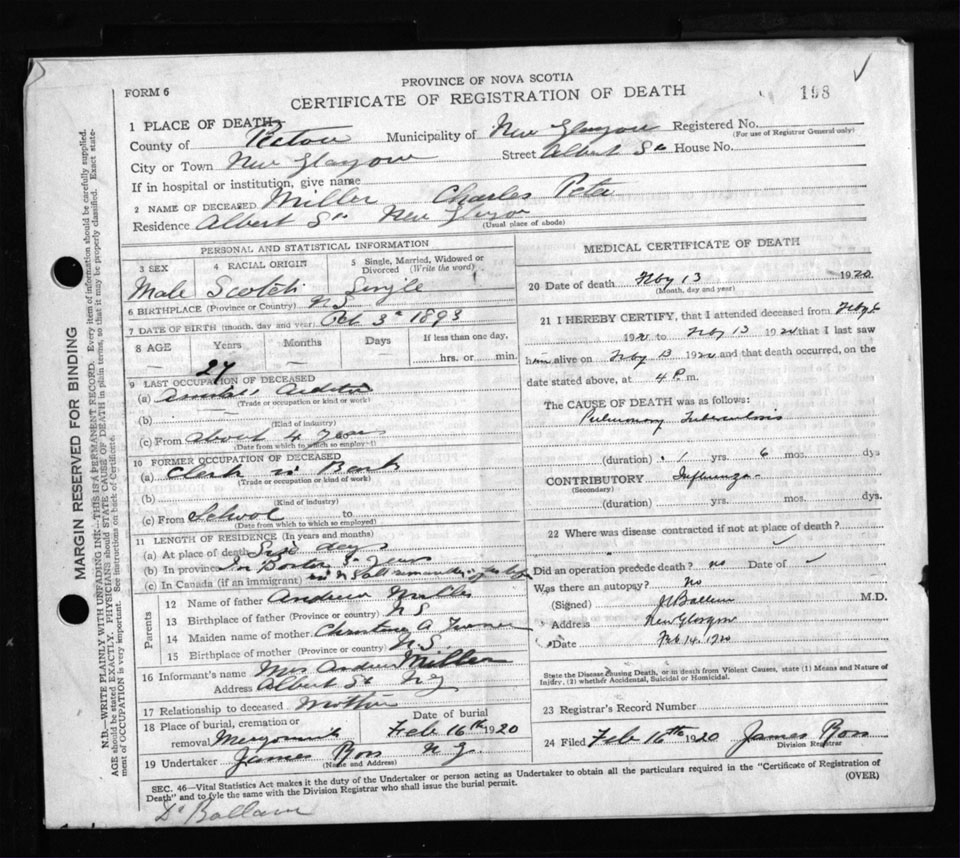 FORM 6
PROVINCE OF NOVA SCOTIA
CERTIFICATE OF REGISTRATION OF DEATH
198
1 PLACE OF DEATH—
County of Pictou Municipality of New Glasgow Registered No.
(For use of Registrar General only)
City or Town New Glasgow Street Albert St House No.
If in hospital or institution, give name
2 NAME OF DECEASED Miller Charles Peter
Residence Albert St New Glasgow
(Usual place of abode)
PERSONAL AND STATISTICAL INFORMATION
3 SEX 4 RACIAL ORIGIN 5 Single, Married, Widowed or Divorced (Write the word)
Male Scotch Single
6 BIRTHPLACE (Province or Country) N S
7 DATE OF BIRTH (month, day and year) 3rd 1893
8 AGE Years Months Days If less than one day,
27 — hrs. or min.
9 LAST OCCUPATION OF DECEASED
(a)
(Trade or occupation or kind of work)
(b)
(Kind of industry)
(c) From about 4 Years
(Date from which to which so employed)
10 FORMER OCCUPATION OF DECEASED
(a) Clerk in Bank
(Trade or occupation or kind of work)
(b)
(Kind of industry)
(c) From School to
(Date from which to which so employed)
11 LENGTH OF RESIDENCE (In years and months)
(a) At place of death days
(b) In province In Boston 5 Years
(c) In Canada (if an immigrant)
Parents
12 Name of father Andrew Miller
13 Birthplace of father (Province or country) N S
14 Maiden name of mother Christena A
15 Birthplace of mother (Province or country) N S
16 Informant's name Mrs Andrew Miller
Address Albert St N G
17 Relationship to deceased Mother
18 Place of burial, cremation or removal Date of burial
Feb 16th 1920
19 Undertaker James Ross N G
(Name and Address)
MEDICAL CERTIFICATE OF DEATH
20 Date of death Feby 13 1920
(Month, day and year)
21 I HEREBY CERTIFY, that I attended deceased from Feby 6
1920 to Feby 13 1920 that I last saw
him alive on Feby 13 1920 and that death occurred, on the
date stated above, at 4 P. m.
The CAUSE OF DEATH was as follows:
Pulmonary Tuberculosis
(duration) 1 yrs. 6 mos. dys
CONTRIBUTORY Influenza
(Secondary)
(duration) yrs. mos. dys.
22 Where was disease contracted if not at place of death?
Did an operation precede death? no Date of
Was there an autopsy? No
(Signed) M.D.
Address New Glasgow
Date Feb 14, 1920
State the Disease Causing Death, or in death from Violent Causes, state (1) Means and Nature of Injury, (2) whether Accidental, Suicidal or Homicidal.
23 Registrar's Record Number
24 Filed Feb 16th 1920 James Ross
Division Registrar
SEC. 46—Vital Statistics Act makes it the duty of the Undertaker or person acting as Undertaker to obtain all the particulars required in the "Certificate of Registration of
Death" and to file the same with the Division Registrar who shall issue the burial permit.
(OVER)
Dr
MARGIN RESERVED FOR BINDING
N.B.—WRITE PLAINLY WITH UNFADING INK—THIS IS A PERMANENT RECORD. Every item of information should be carefully supplied.
AGE should be stated EXACTLY. PHYSICIANS should STATE CAUSE OF DEATH in plain terms, so that it may be properly classified. Exact statement of OCCUPATION is very important. See instructions on back of Certificate.